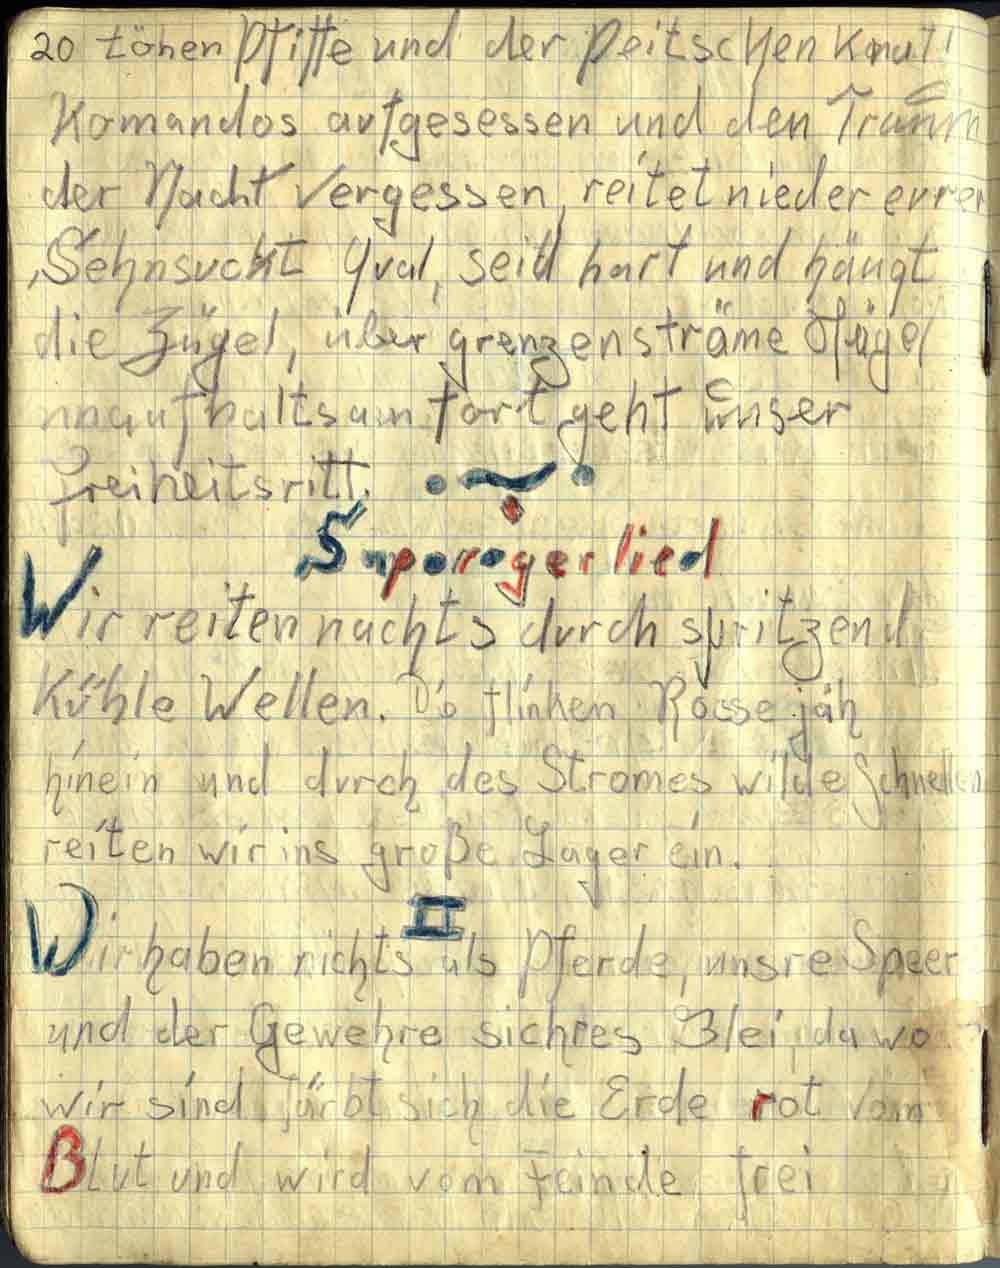 20 tönen Pfiffe und der Peitschen Knall
Komandos aufgesessen und den Traum
der Nacht vergessen, reitet nieder eurer
Sehnsucht Qual, seid hart und hängt
die Zügel, über grenzensträme Hügel
unaufhaltsam fort geht unser
Freiheitsritt.
Saporogerlied
Wir reiten nachts durch spritzend
Kühle Wellen. Die flinken Rosse jäh
hinein und durch des Stromes wilde Schnellen
reiten wir ins große Lager ein.
II
Wir haben nichts als Pferde, unsre Speer
und der Gewehre sichres Blei, da wo
wir sind färbt sich die Erde rot vom
Blut und wird vom Feinde frei